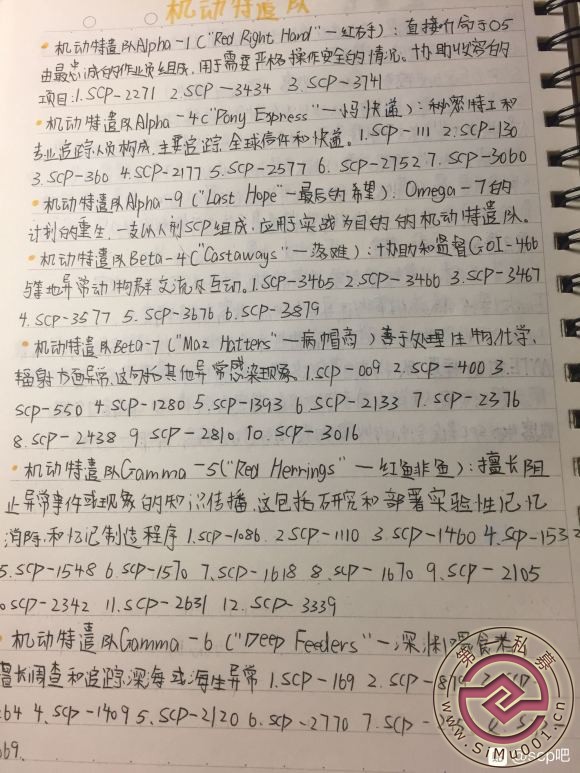 机动特遣队
• 机动特遣队Alpha-1("Red Right Hand"—红右手): 直接听命于O5
由最忠诚的作业员组成,用于需要严格操作安全的情况。协助收容的
项目:1.SCP-2271 2.SCP-3434 3.SCP-3741
• 机动特遣队Alpha-4("Pony Express"—妈快递): 秘密特工和
专业追踪人员构成,主要追踪全球信件和快递。1.SCP-111 2.SCP-130
3.SCP-360 4.SCP-2177 5.SCP-2577 6.SCP-2752 7.SCP-3060
• 机动特遣队Alpha-9("Last Hope"—最后的希望): Omega-7的
计划的重生,一支以人形SCP组成,应用于实战为目的的机动特遣队。
• 机动特遣队Beta-4("Castaways"—落难): 协助和监督GOI-466
与等地异常动物群交流及互动。1.SCP-3465 2.SCP-3460 3.SCP-3467
4.SCP-3577 5.SCP-3676 6.SCP-3879
• 机动特遣队Beta-7("Maz Hatters"—病帽商)善于处理生物,化学,
辐射方面异常,这包括其他异常感染现象。1.SCP-009 2.SCP-400 3.
SCP-550 4.SCP-1280 5.SCP-1393 6.SCP-2133 7.SCP-2376
8.SCP-2438 9.SCP-2810 10.SCP-3016
• 机动特遣队Gamma-5("Red Herrings"—红鱼非鱼): 擅长阻
止异常事件或现象的知识传播,这包括研究和部署实验性记忆
消除,和忆记制造程序 1.SCP-1086. 2.SCP-1110 3.SCP-1460 4.SCP-1532
5.SCP-1548 6.SCP-1570 7.SCP-1618 8.SCP-1670 9.SCP-2105
SCP-2342 11.SCP-2631 12.SCP-3339
• 机动特遣队Gamma-6("Deep Feeders"—深渊
擅长调查和追踪深海或海生异常 1.SCP-169 2.SCP-
264 4.SCP-1409 5.SCP-2120 6.SCP-2770 7.SCP-
069.
私募
www.SiMu001.cn
@scp吧